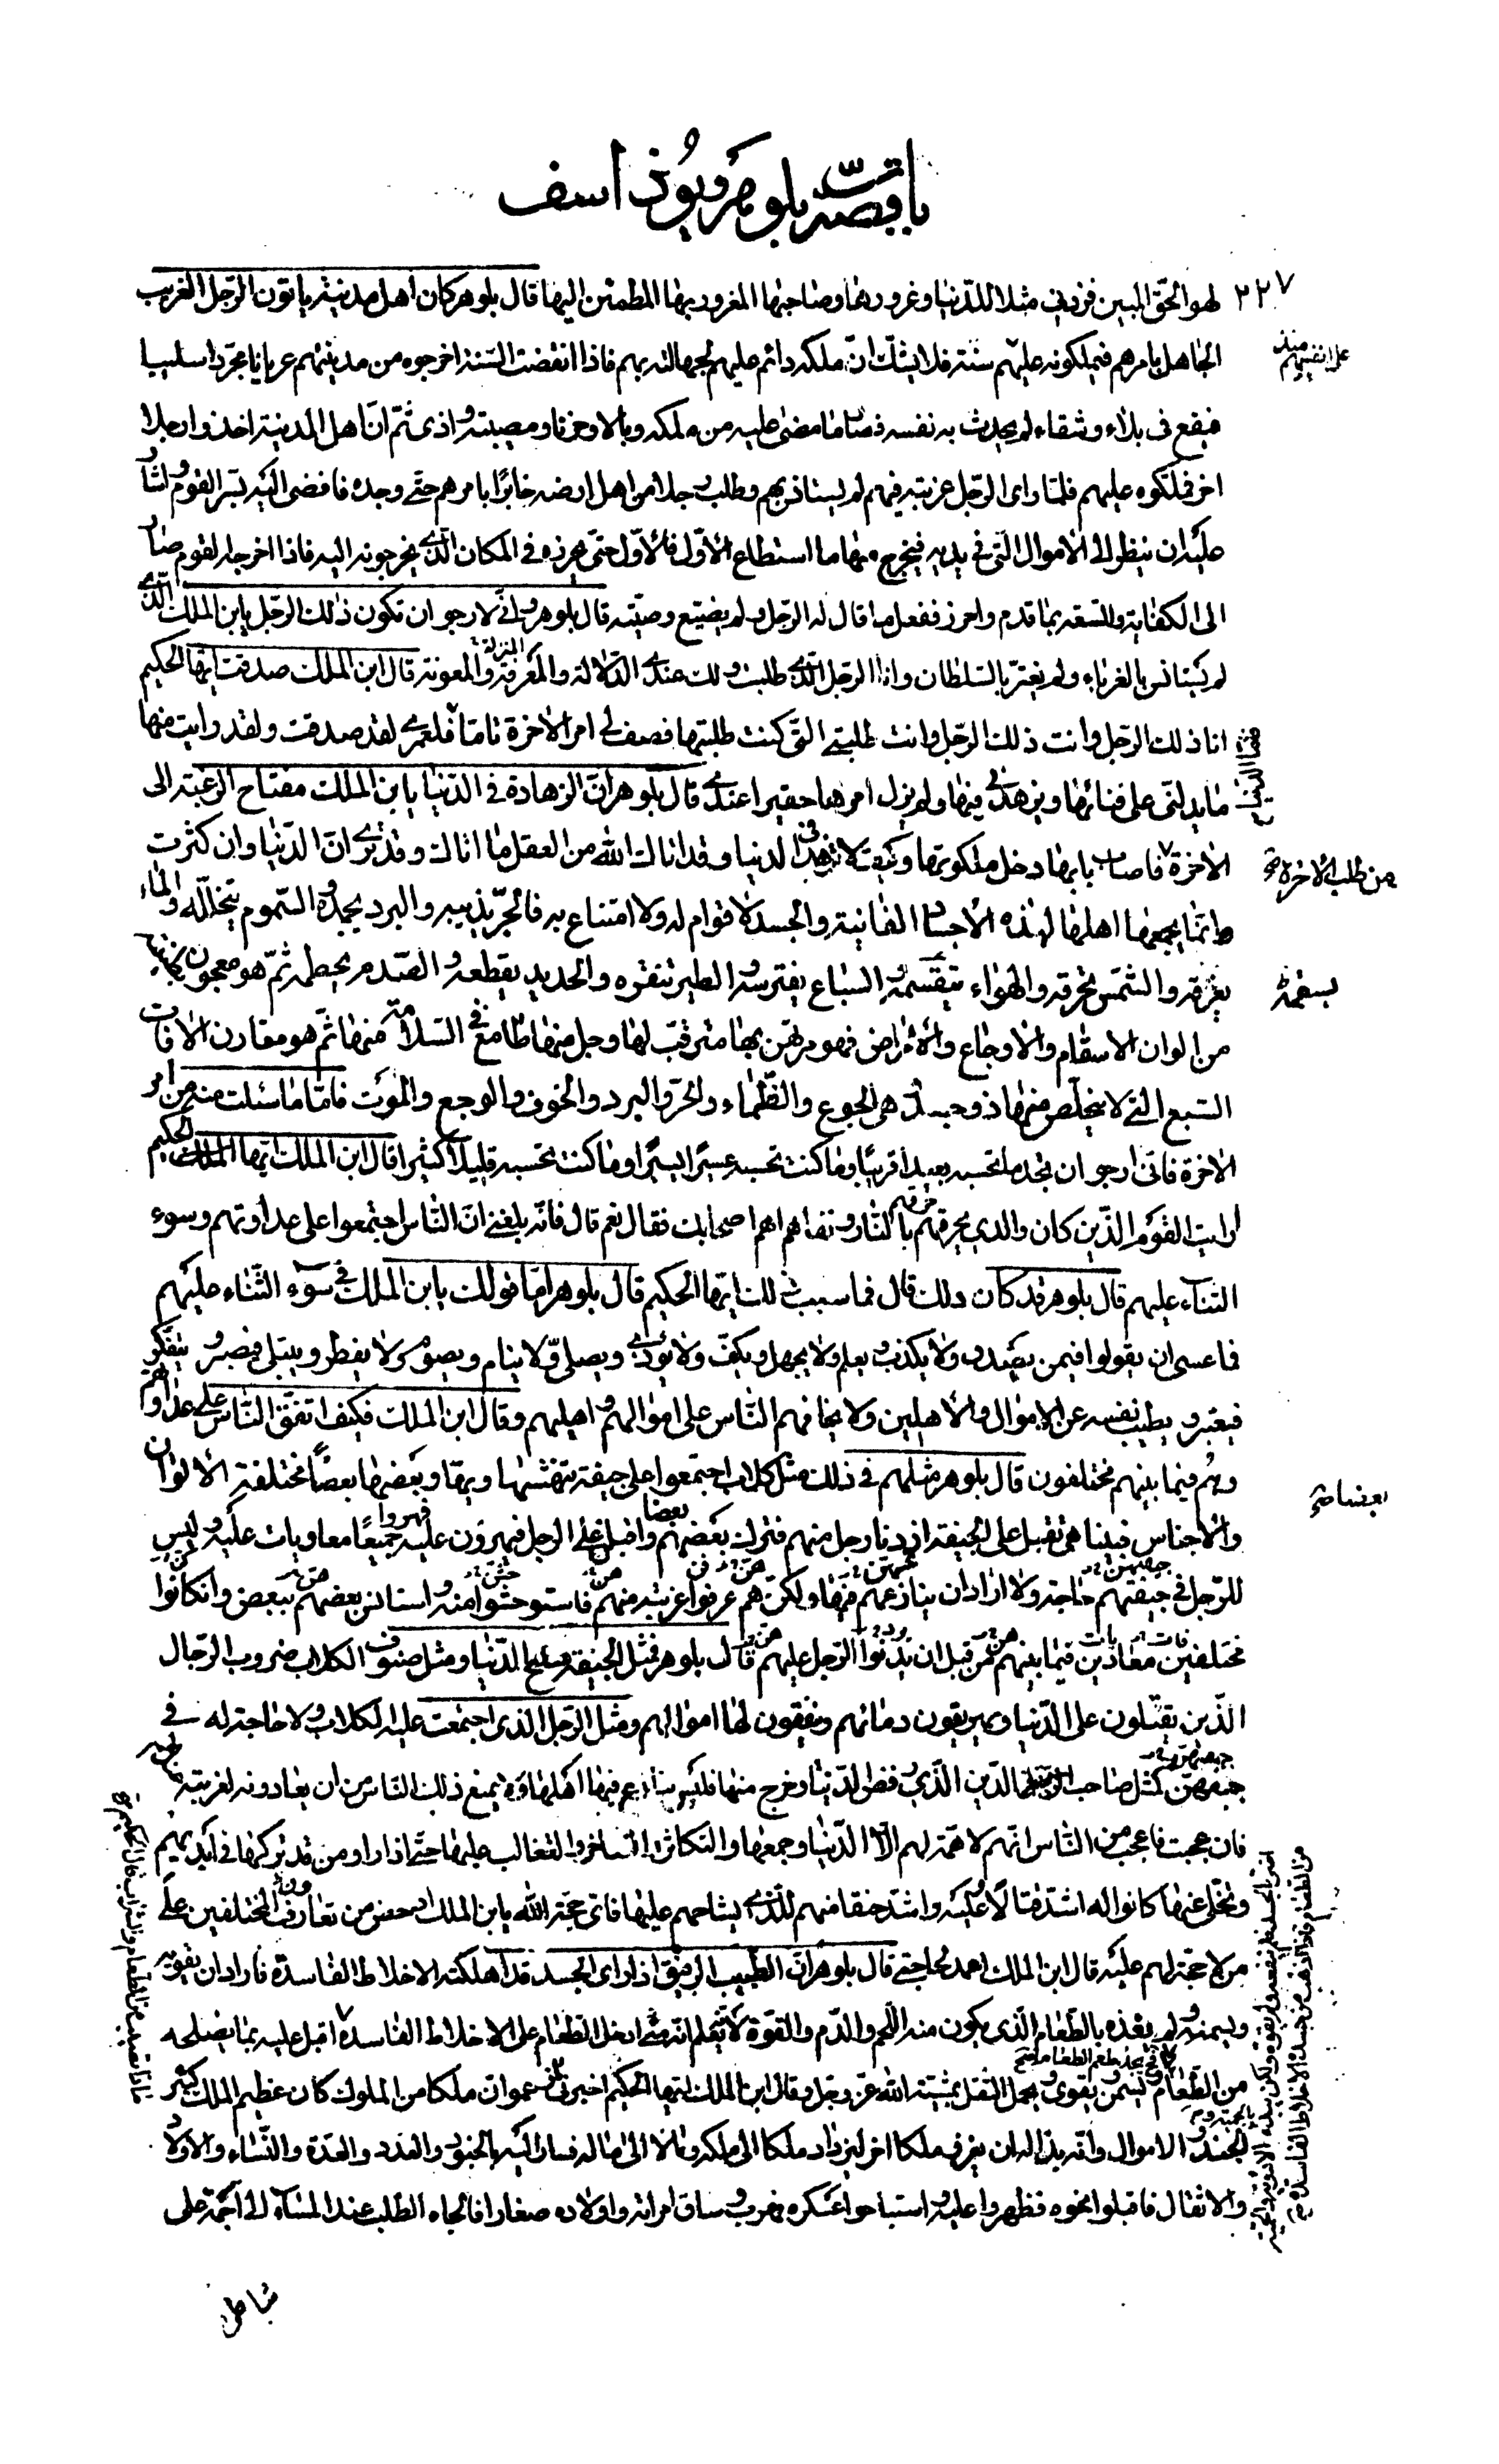 باقصة بلوهر ويوذاسف
٢٢٧
لهو الحق المبين فزدني مثلا للدنيا وغرورها وصاحبها المغرور بها المطمئن اليها قال بلوهر كان اهل مدينة ياتون الرجل الغريب
الجاهل بامرهم فيملكونه عليهم سنة فلا يشك ان ملكه دائم عليهم لجهالته بهم فاذا انقضت السنة اخرجوه من مدينتهم عريانا مجردا سليبا
فيقع في بلاء وشقاء لم يحدث به نفسه فصار ما مضى عليه من ملكه وبالا وحزنا ومصيبة واذى ثم ان اهل المدينة اخذوا رجلا
اخر فملكوه عليهم فلما راى الرجل غربته فيهم لم يستانس بهم وطلب رجلا من اهل ارضه خابرا بامرهم حتى وجده فافضى اليه بسر القوم واشار
عليه ان ينظر الى الاموال التي في يديه فيخرج منها ما استطاع الاول فالاول حتى يحرزه في المكان الذي يخرجونه اليه فاذا اخرجه القوم صار
الى الكفاية والسعة بما قدم واحرز ففعل ما قال له الرجل ولم يضيع وصيته قال بلوهر واني لارجو ان تكون ذلك الرجل يابن الملك الذي
لم يستانس بالغرباء ولم يغتر بالسلطان وانا الرجل الذي طلبت ولك عندي الدلالة والمعرفة والمعونة قال ابن الملك صدقت ايها الحكيم
انا ذلك الرجل وانت ذلك الرجل وانت طلبتي التي كنت طلبتها فصف لي امر الاخرة تاما فلعمري لقد صدقت ولقد رايت منها
ما يدلني على فنائها ويزهدني فيها ولم يزل امرها حقيرا عندي قال بلوهر ان الزهادة في الدنيا يابن الملك مفتاح الرغبة الى
الاخرة فاصاب بابها دخل ملكوتها وكيف لا تزهد في الدنيا وقد اتاك الله من العقل ما اتاك وقد ترى ان الدنيا وان كثرت
من طلب الاخرة
وانما يجمعها اهلها لهذه الاجساد الفانية والجسد لا قوام له ولا امتناع به فالحر يذيبه والبرد يجمده والسموم يتخلله والماء
يغرقه والشمس تحرقه والهواء يتقسمه والسباع يفترسه والطير تنقره والحديد يقطعه والصدم يحطمه ثم هو معجون بطينة
يسقمه
من الوان الاسقام والاوجاع والامراض فهو مرتهن بها مترقب لها وجل منها طامع في السلامة منها ثم هو مقارن الافات
السبع التي لا يتخلص منها ذو جسد هي الجوع والظماء والحر والبرد والخوف والوجع والموت فاما ما سئلت عنه من امر
الاخرة فاني ارجو ان تجد ما تحسبه بعيدا قريبا وما كنت تحسبه عسيرا يسيرا وما كنت تحسبه قليلا كثيرا قال ابن الملك ايها الحكيم
ارايت القوم الذين كان والدي يحرقهم بالنار ونفاهم اهم اصحابك فقال نعم قال فانه بلغني ان الناس اجتمعوا على عداوتهم وسوء
الثناء عليهم قال بلوهر قد كان ذلك قال فما سبب ذلك ايها الحكيم قال بلوهر اما قولك يابن الملك في سوء الثناء عليهم
فما عسى ان يقولوا فيمن يصدق ولا يكذب ويعلم ولا يجهل ويكف ولا يؤذي ويصلي ولا ينام ويصوم ولا يفطر ويبتلى فيصبر ويتفكر
فيعتبر ويطيب نفسه عن الاموال والاهلين ولا يخافهم الناس على اموالهم واهليهم وقال ابن الملك فكيف اتفق الناس على عداوتهم
وهم فيما بينهم مختلفون قال بلوهر مثلهم في ذلك مثل كلاب اجتمعوا على جيفة تنهشها ويهار بعضها بعضا مختلفة الالوان
والاجناس فبينا هي تقبل على الجيفة اذ دنا رجل منهم فترك بعضهم بعضا واقبلن على الرجل فيهرون عليه جميعا معاويات عليه وليس
للرجل في جيفتهم حاجة ولا اراد ان ينازعهم فيها ولكن هم عرفوا غربته منهم فاستوحشوا منه واستانس بعضهم ببعض وان كانوا
مختلفين معادين فيما بينهم من قبل ان يدنوا الرجل عليهم قال بلوهر فمثل الجيفة متاع الدنيا ومثل صنوف الكلاب ضروب الرجال
الذين يقتتلون على الدنيا ويهريقون دمائهم وينفقون لها اموالهم ومثل الرجل الذي اجتمعت عليه الكلاب ولا حاجة له في
جيفهن كمثل صاحب الدين الذي رفض الدنيا وخرج منها فليس ينازعهم فيها اهلها ولا يمنع ذلك الناس من ان يعادونه لغربته
فان عجبت فاعجب من الناس انهم لا همة لهم الا الدنيا وجمعها والتكاثر والتفاخر والتغالب عليها حتى اذا راوا من قد تركها في ايديهم
وتخلى عنها كانوا له اشد قتالا عليه واشد حنقا منهم للذي يشاحهم عليها فاي حجة لله يابن الملك ادحض من تعاون المختلفين على
من لا حجة لهم عليه قال ابن الملك اعمد لحاجتي قال بلوهر ان الطبيب الرفيق اذا راى الجسد قد اهلكته الاخلاط الفاسدة فاراد ان يقويه
ويسمنه لم يغذه بالطعام الذي يكون منه اللحم والدم والقوة لانه يعلم انه متى ادخل الطعام على الاخلاط الفاسدة اقبل عليه بما يصلحه
من الطعام ويسمن ويقوى ويحمل الثقل بمشية الله عز وجل وقال ابن الملك ايها الحكيم اخبرني زعموا ان ملكا من الملوك كان عظيم الملك كثير
الجند والاموال وانه بدا له ان يغزو ملكا اخر ليزداد ملكا الى ملكه ومالا الى ماله فسار اليه بالجنود والعدد والعدة والنساء والاولاد
والاثقال فاقبلوا نحوه فظهروا عليه واستباحوا عسكره فهرب وساق امراته واولاده صغارا فالجاه الطلب عند المساء الى اجمة على
شاطئ